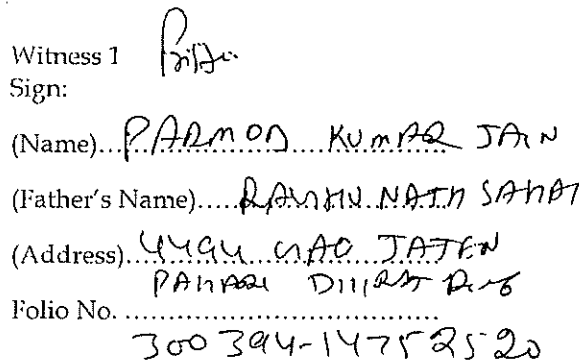 Witness 1
Sign:
(Name)...PARMOD KUMAR JAIN
(Father's Name).....NATH SAHAI
(Address)..4494
PAHARI DHIRAJ
Folio No. ..................................
300394-14752520